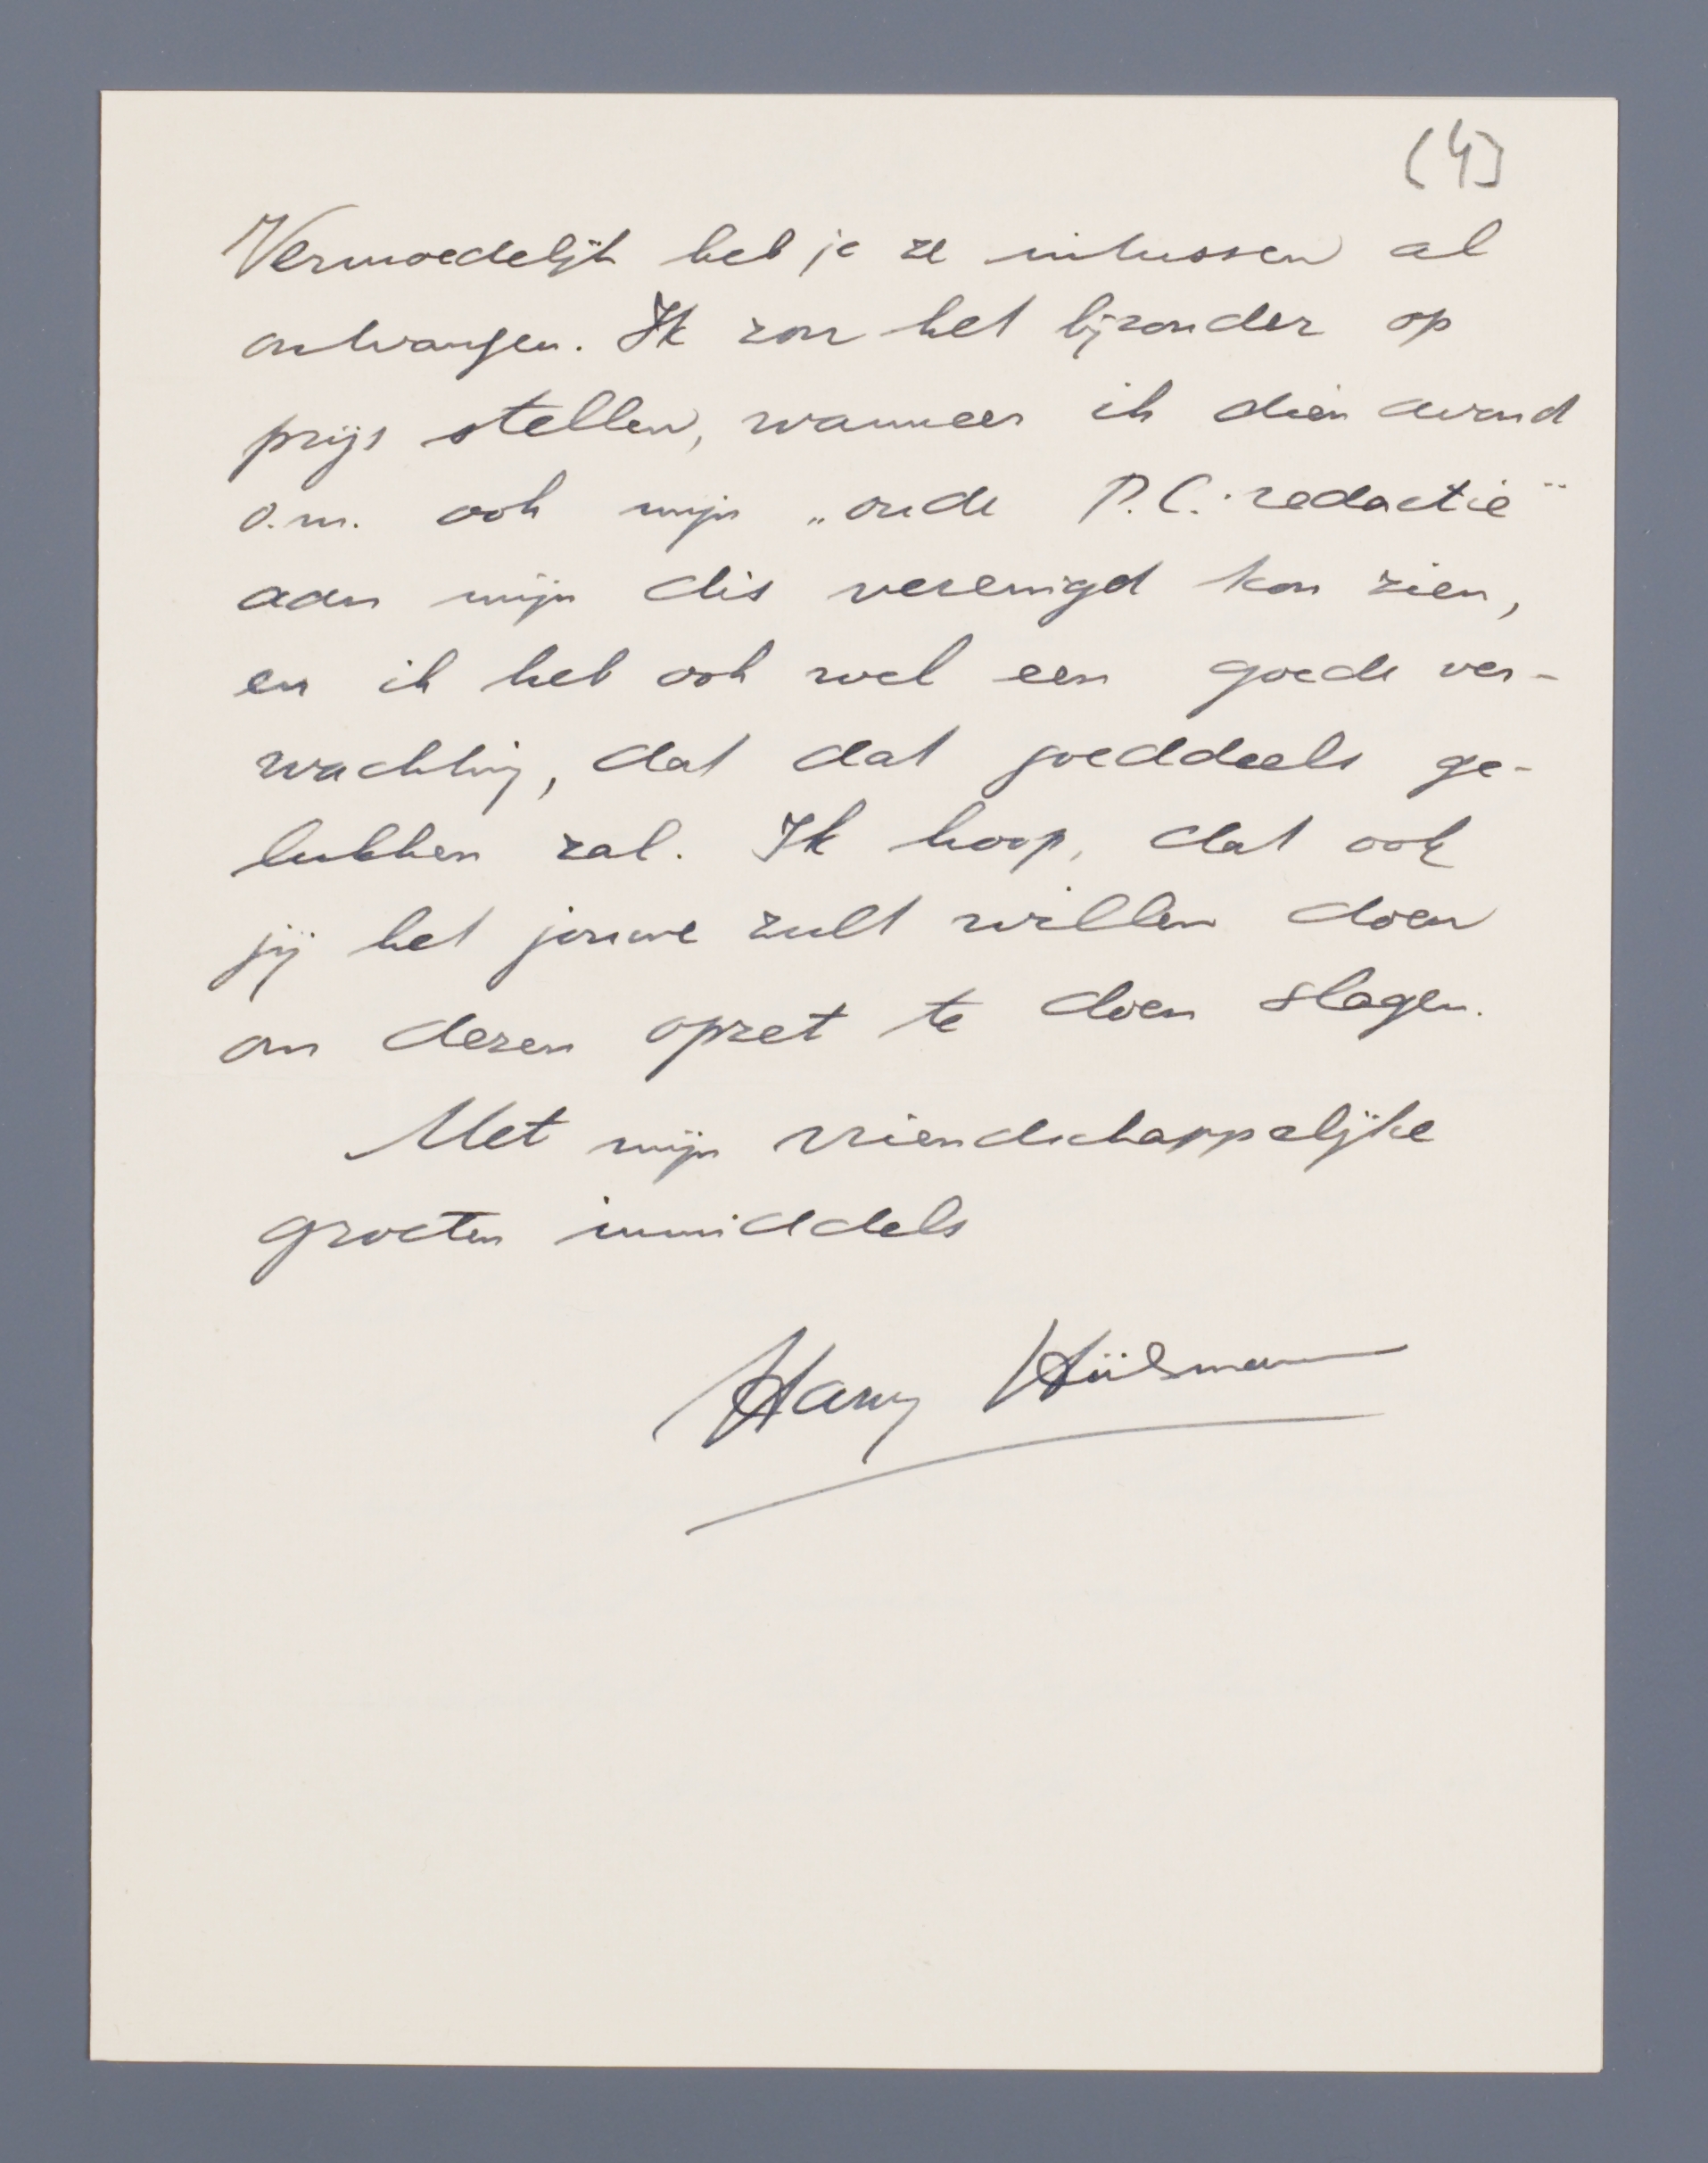 (4)
Vermoedelijk heb je ze intussen al
ontvangen. Ik zou het bijzonder op
prijs stellen, wanneer ik dien avond
o.m. ook mijn „oude P.C.-redactie"
aan mijn dis verenigd kon zien,
en ik heb ook wel een goede ver-
wachting, dat dat goeddeels ge-
lukken zal. Ik hoop, dat ook
jij het jouwe zult willen doen
om dezen opzet te doen slagen.
Met mijn vriendschappelijke
groeten inmiddels
Harry Hülsmann